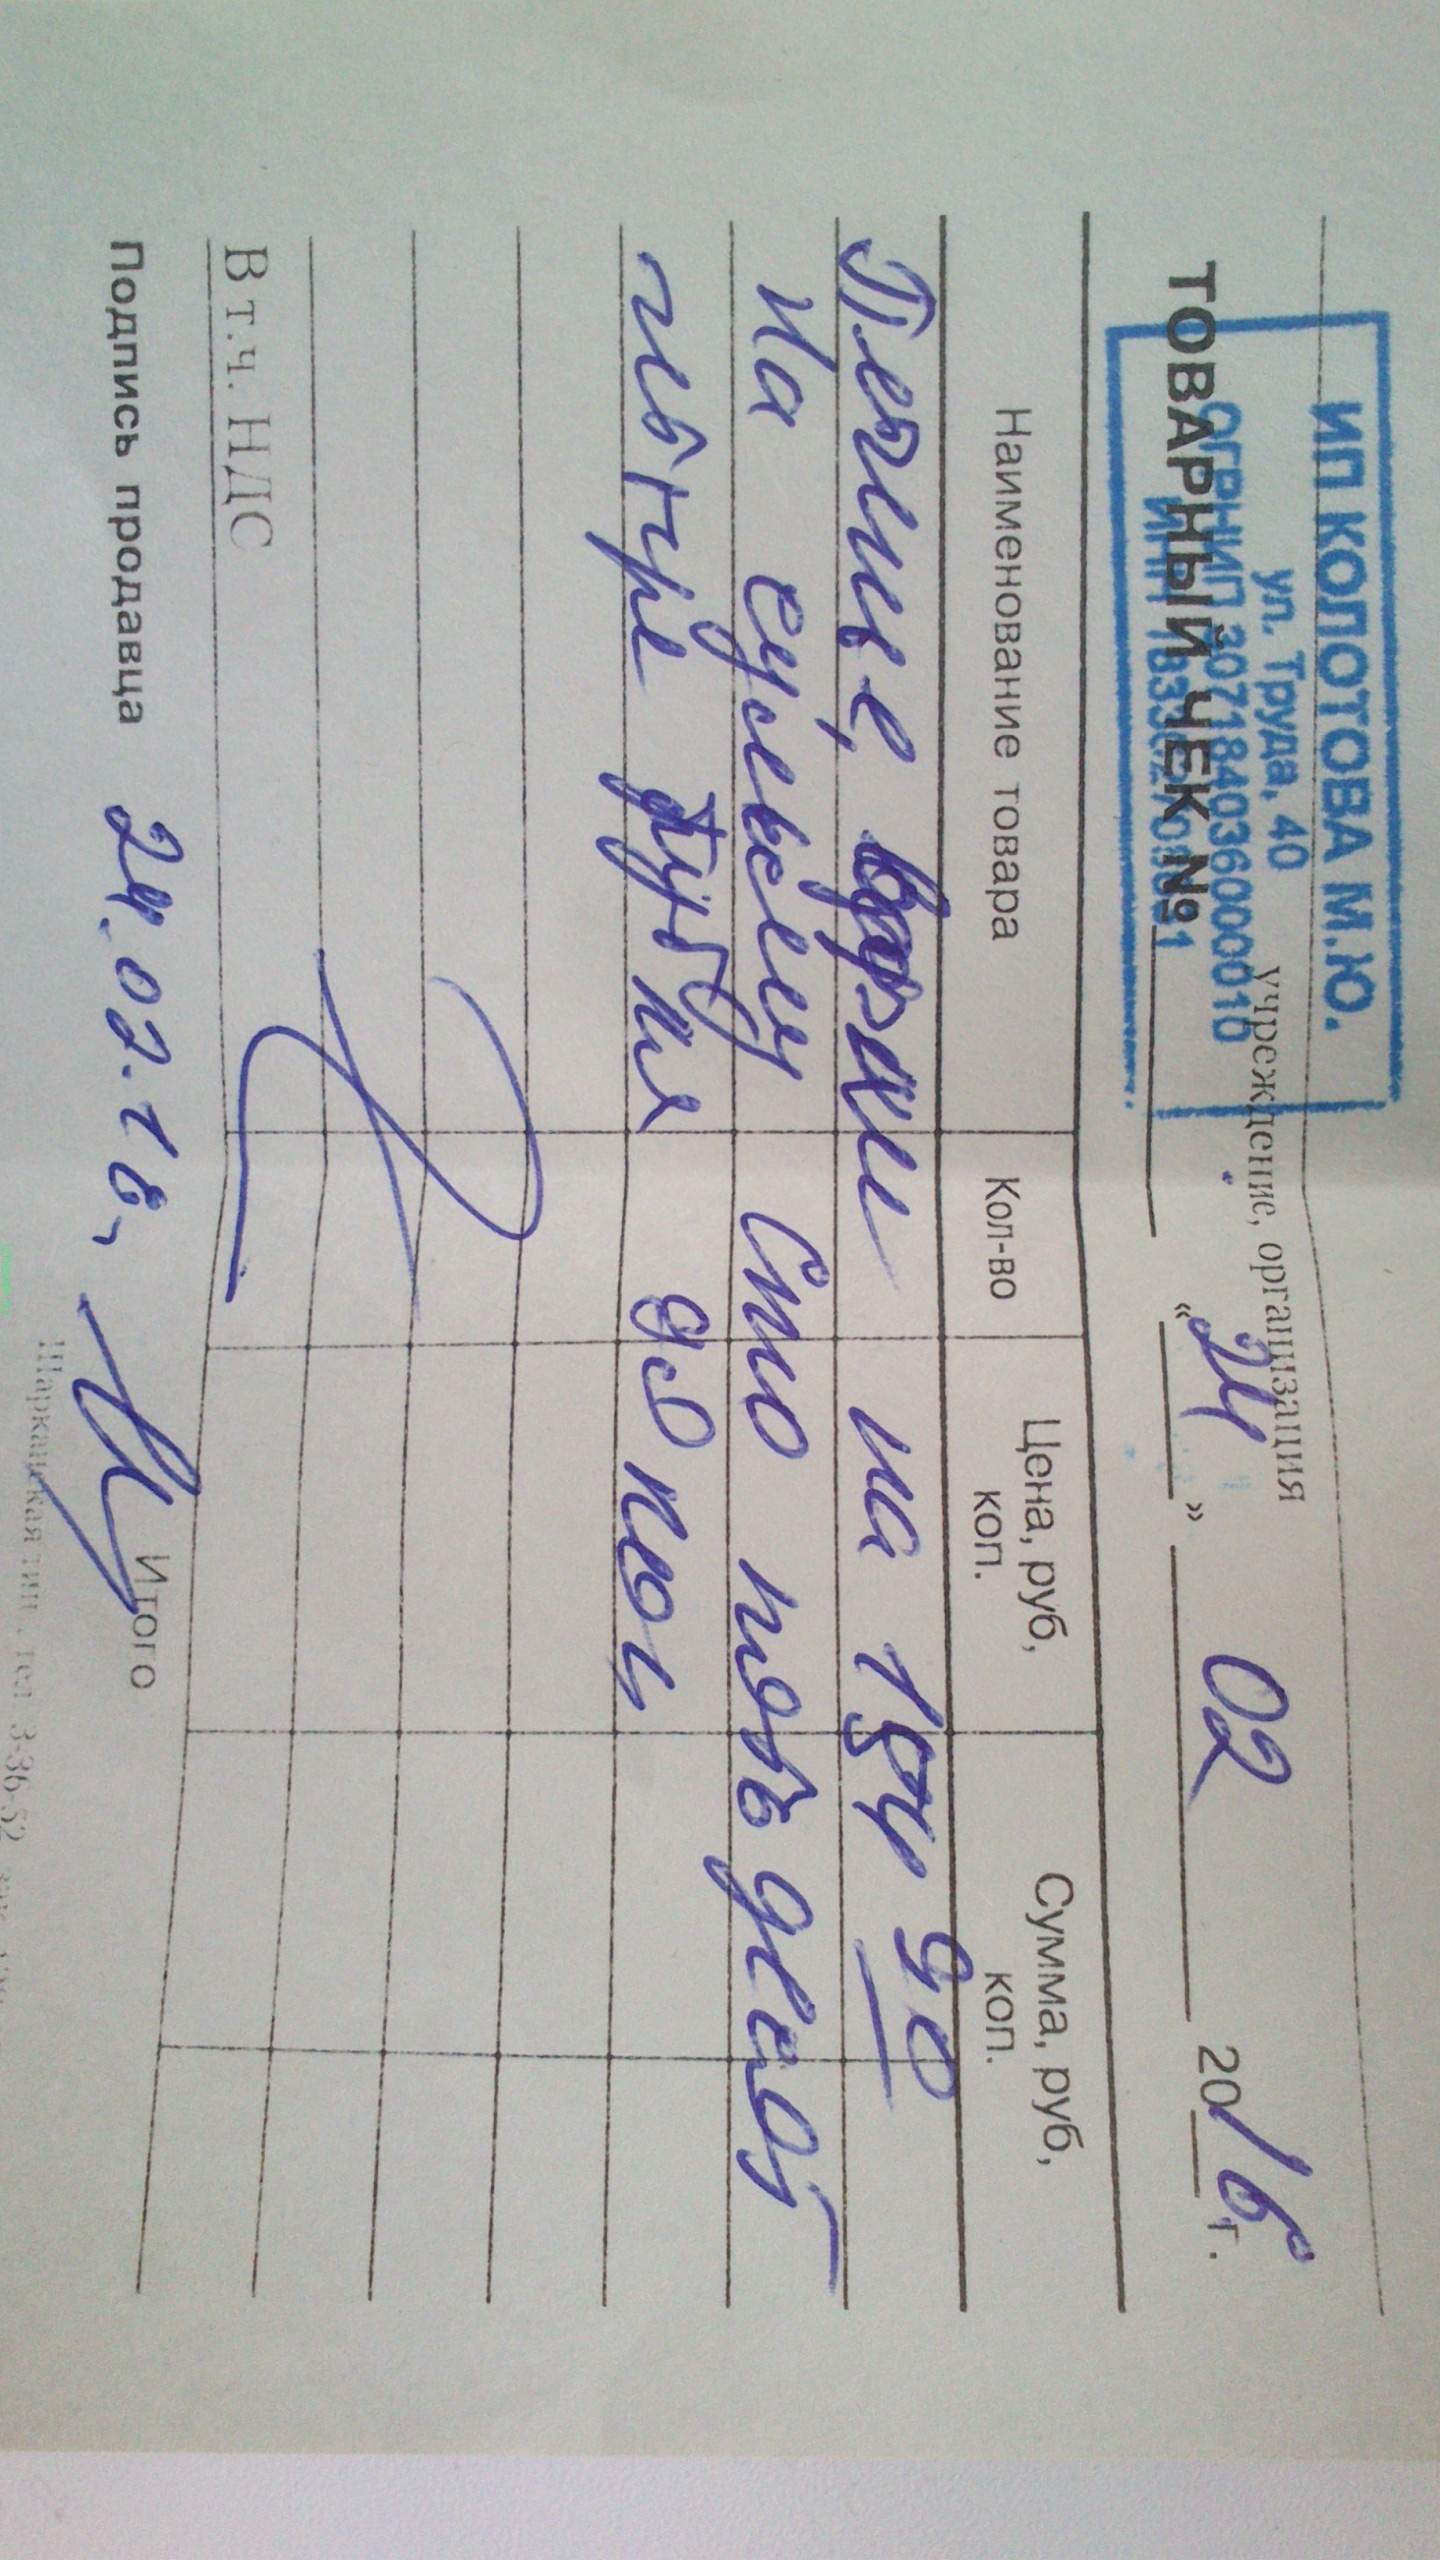 ИП КОЛОТОВА М.Ю.
ул. Труда, 40
учреждение, организация
ОГРНИП 307184036000010
ТОВАРНЫЙ ЧЕК № « 24 » 02 2016 г.
ИНН
Наименование товара Кол-во Цена, руб, коп. Сумма, руб, коп.
на 154 90
На сумму Сто пятьдесят
четыре рубля 90 коп
В т.ч. НДС
Подпись продавца 24.02.16, Итого
Шарканская тип. тел 3-36-52